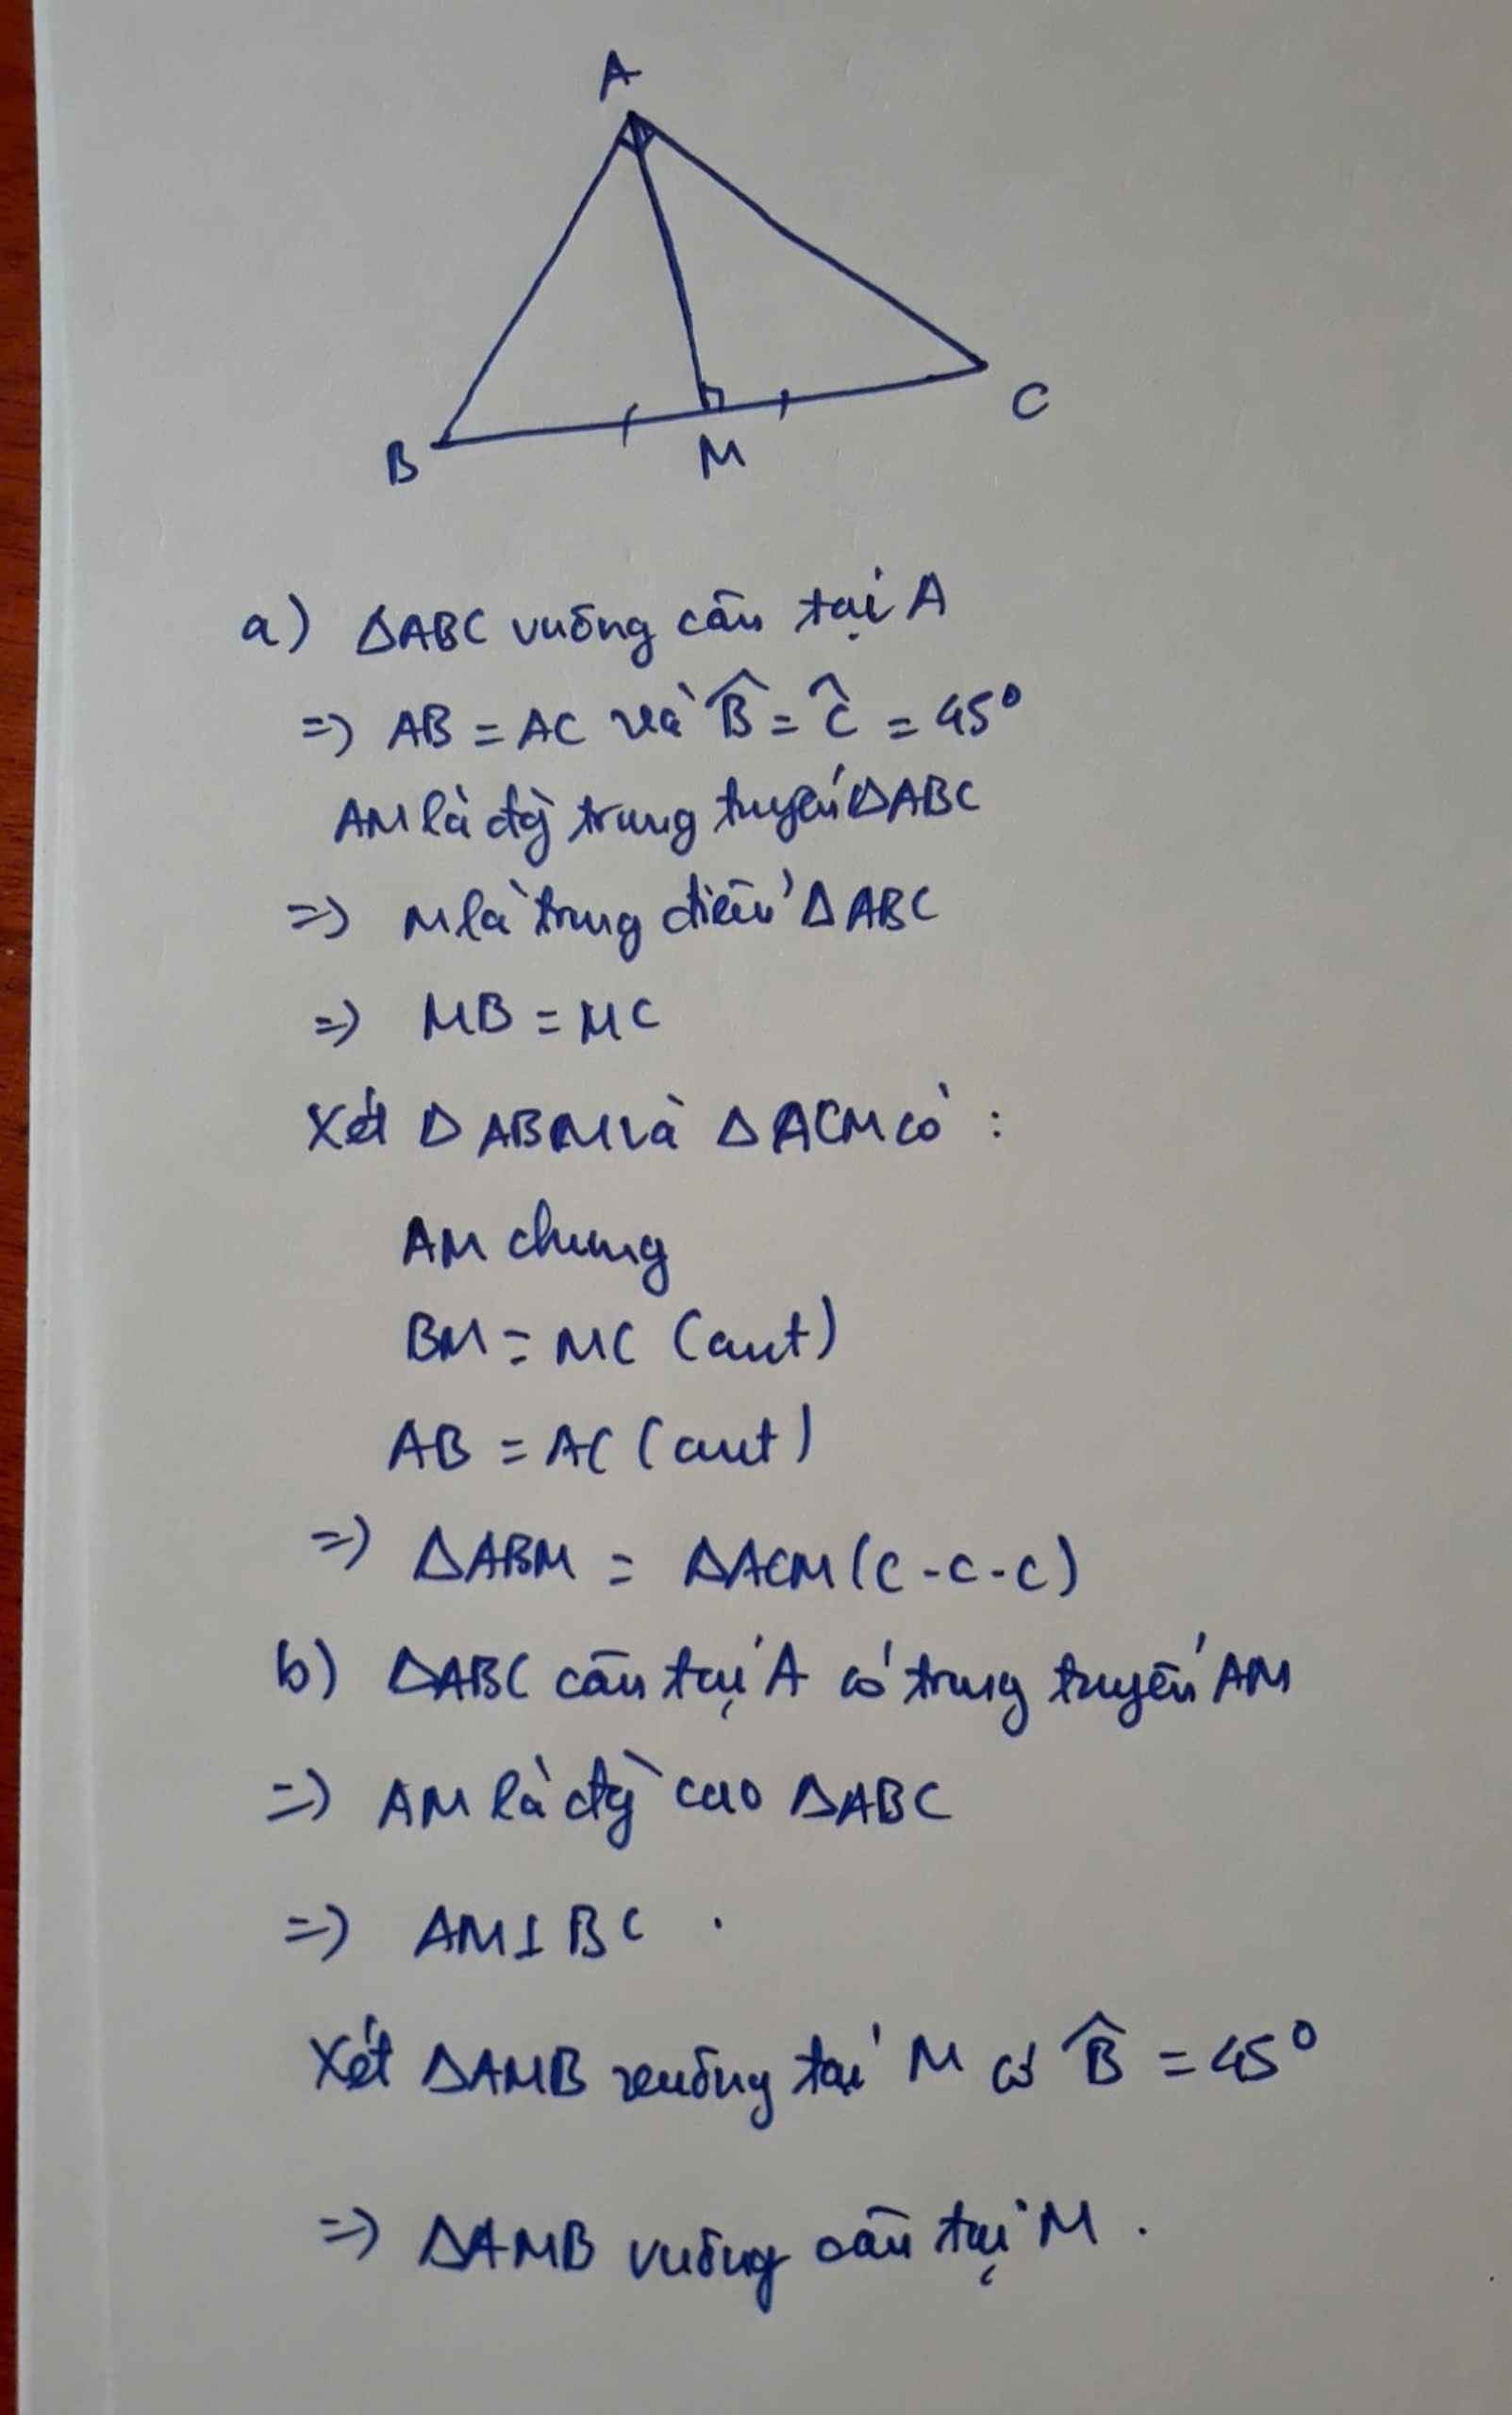 A
B
M
C
a) ΔABC vuông cân tại A
=) AB = AC và B̂ = Ĉ = 45°
AM là đg trung tuyến ΔABC
=) M là trung điểm ΔABC
=) MB = MC
Xét Δ ABM và Δ ACM có :
AM chung
BM = MC (cmt)
AB = AC (cmt)
=) ΔABM = ΔACM (c-c-c)
b) ΔABC cân tại A có trung tuyến AM
=) AM là đg cao ΔABC
=) AM ⊥ BC .
Xét ΔAMB vuông tại M có B̂ = 45°
=) ΔAMB vuông cân tại M .